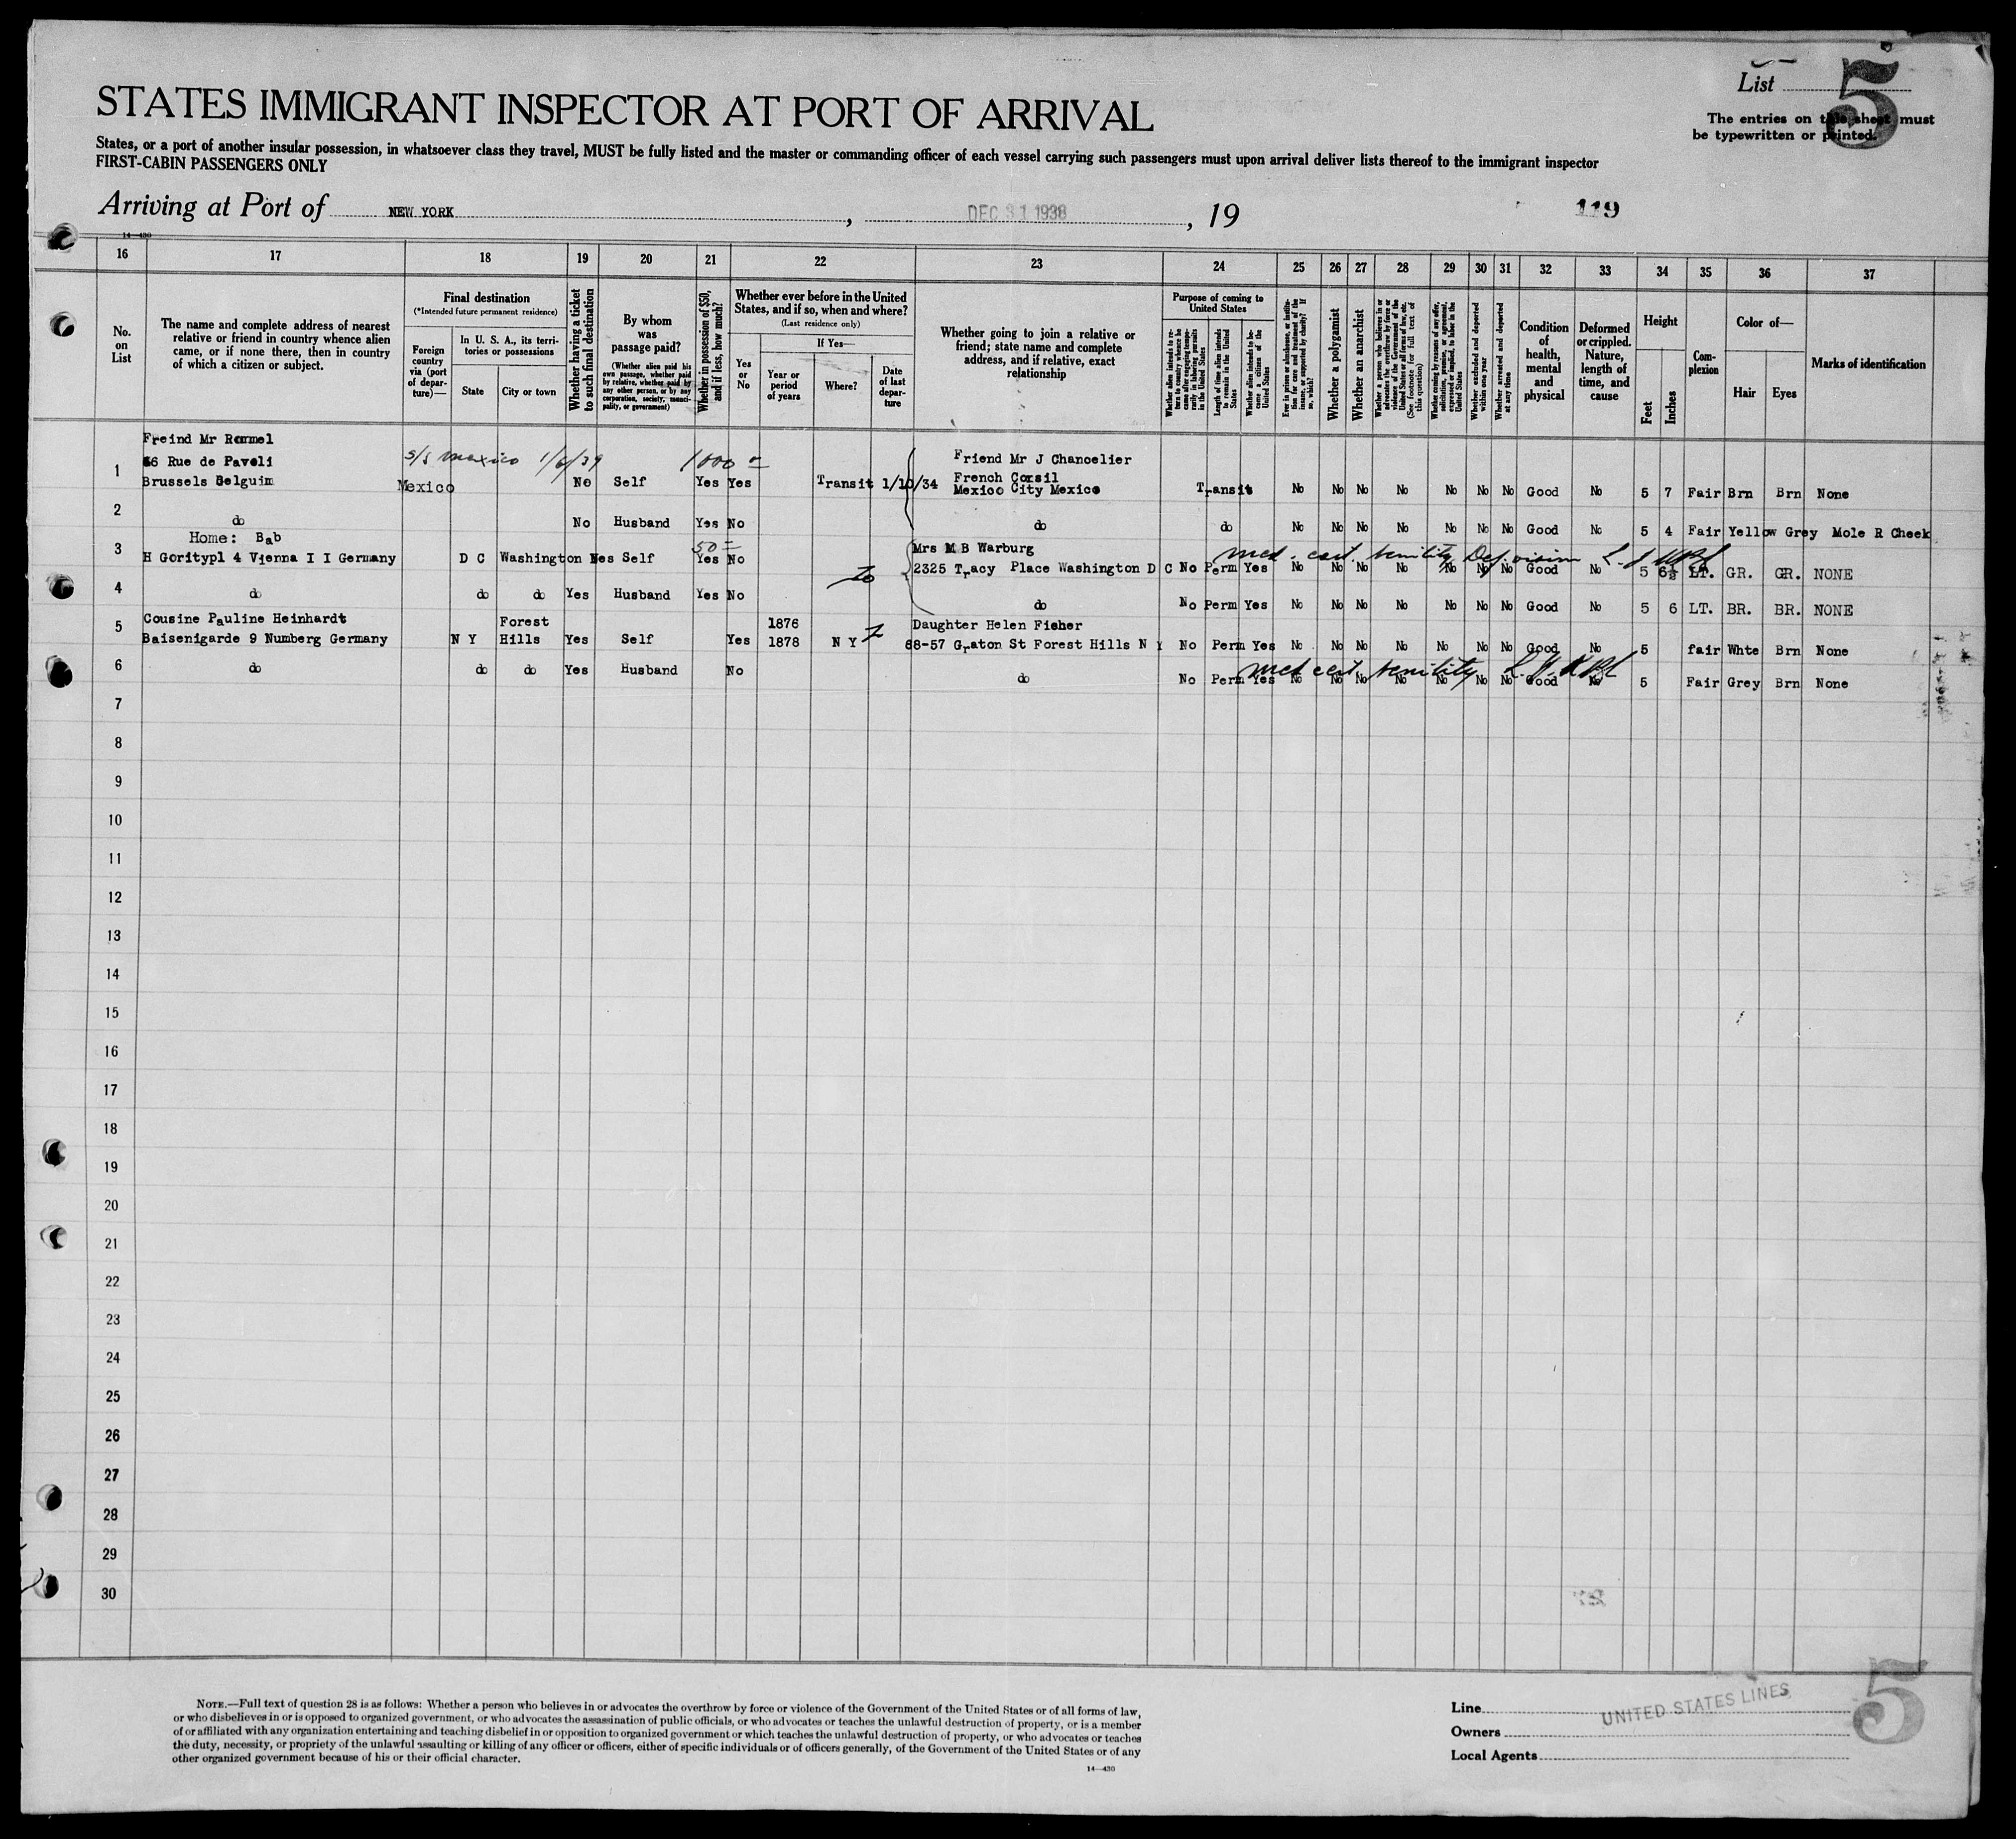 List 5
The entries on this sheet must
be typewritten or printed.
STATES IMMIGRANT INSPECTOR AT PORT OF ARRIVAL
States, or a port of another insular possession, in whatsoever class they travel, MUST be fully listed and the master or commanding officer of each vessel carrying such passengers must upon arrival deliver lists thereof to the immigrant inspector
FIRST-CABIN PASSENGERS ONLY
Arriving at Port of NEW YORK, DEC 31 1938, 19
119
14—430
16 17 18 19 20 21 22 23 24 25 26 27 28 29 30 31 32 33 34 35 36 37
No. on List
The name and complete address of nearest relative or friend in country whence alien came, or if none there, then in country of which a citizen or subject.
Final destination
(*Intended future permanent residence)
Foreign country via (port of departure)—
In U. S. A., its territories or possessions
State
City or town
Whether having a ticket to such final destination
By whom was passage paid?
(Whether alien paid his own passage, whether paid by relative, whether paid by any other person, or by any corporation, society, municipality, or government)
Whether in possession of $50, and if less, how much?
Whether ever before in the United States, and if so, when and where?
(Last residence only)
Yes or No
If Yes—
Year or period of years
Where?
Date of last departure
Whether going to join a relative or friend; state name and complete address, and if relative, exact relationship
Purpose of coming to United States
Length of time alien intends to remain in the United States
Whether alien intends to become a citizen of the United States
Whether a polygamist
Whether an anarchist
Whether excluded and deported within one year
Whether arrested and deported at any time
Condition of health, mental and physical
Deformed or crippled. Nature, length of time, and cause
Height
Feet
Inches
Complexion
Color of—
Hair
Eyes
Marks of identification
Freind Mr Rommel
66 Rue de Paveli s/s Mexico 1/6/39 1000 Friend Mr J Chancelier
1 Brussels Belguim Mexico No Self Yes Yes Transit 1/10/34 French Consil
Mexico City Mexico Transit No No No No No No No Good No 5 7 Fair Brn Brn None
2 do No Husband Yes No do do No No No No No No No Good No 5 4 Fair Yellow Grey Mole R Cheek
Home: Bab 50 Mrs M B Warburg med. cert. senility Def vision
3 H Goritypl 4 Vienna I I Germany D C Washington Yes Self Yes No 2325 Tracy Place Washington D C No Perm Yes No No No No No No No Good No 5 6½ LT. GR. GR. NONE
4 do do do Yes Husband Yes No do No Perm Yes No No No No No No No Good No 5 6 LT. BR. BR. NONE
Cousine Pauline Heinhardt Forest 1876 Daughter Helen Fisher
5 Baisenigarde 9 Numberg Germany N Y Hills Yes Self Yes 1878 N Y 68-57 Graton St Forest Hills N Y No Perm Yes No No No No No No No Good No 5 fair Whte Brn None
med cert senility
6 do do do Yes Husband No do No Perm Yes No No No No No No No Good No 5 Fair Grey Brn None
7
8
9
10
11
12
13
14
15
16
17
18
19
20
21
22
23
24
25
26
27
28
29
30
NOTE.—Full text of question 28 is as follows: Whether a person who believes in or advocates the overthrow by force or violence of the Government of the United States or of all forms of law,
or who disbelieves in or is opposed to organized government, or who advocates the assassination of public officials, or who advocates or teaches the unlawful destruction of property, or is a member
of or affiliated with any organization entertaining and teaching disbelief in or opposition to organized government or which teaches the unlawful destruction of property, or who advocates or teaches
the duty, necessity, or propriety of the unlawful assaulting or killing of any officer or officers, either of specific individuals or of officers generally, of the Government of the United States or of any
other organized government because of his or their official character.
14—430
Line UNITED STATES LINES
Owners
Local Agents
5